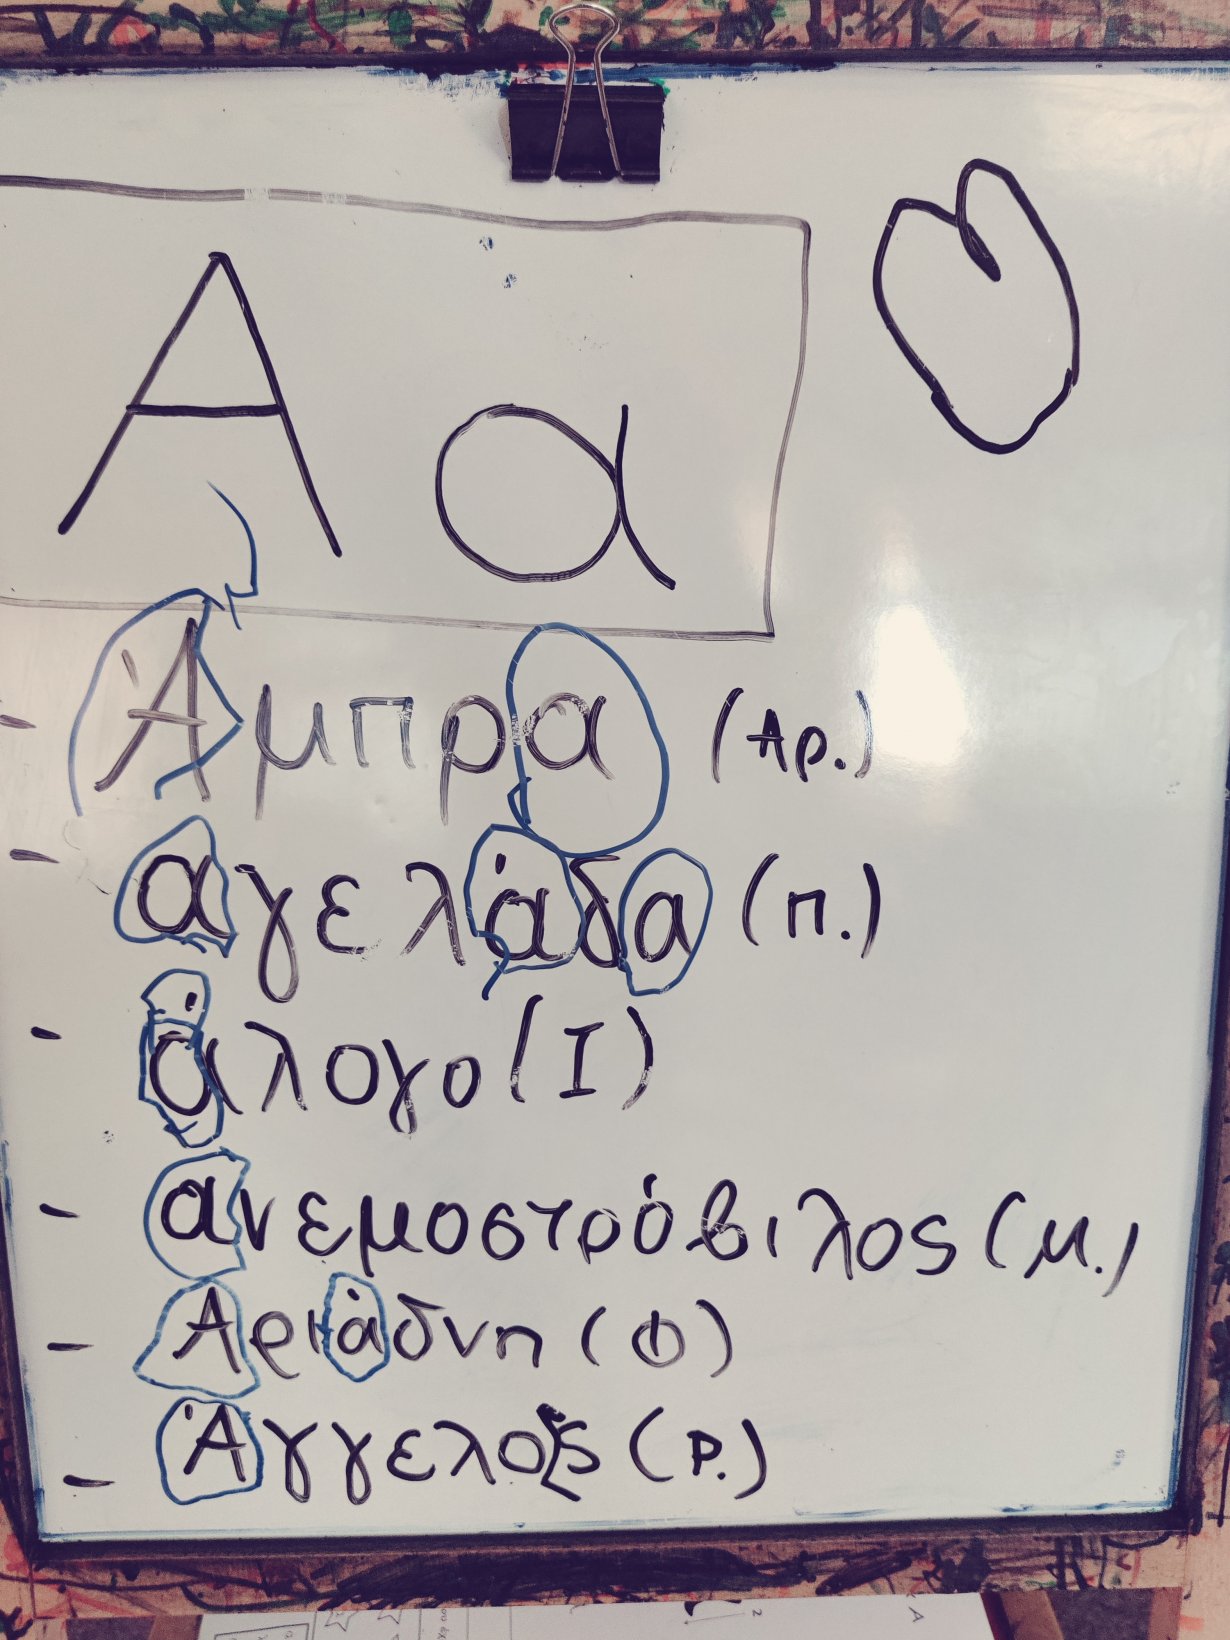 Α α
- Άμπρα (Αρ.)
- αγελάδα (π.)
- άλογο (Ι)
- ανεμοστρόβιλος (μ.)
- Αριάδνη (Φ)
- Άγγελος (Ρ.)